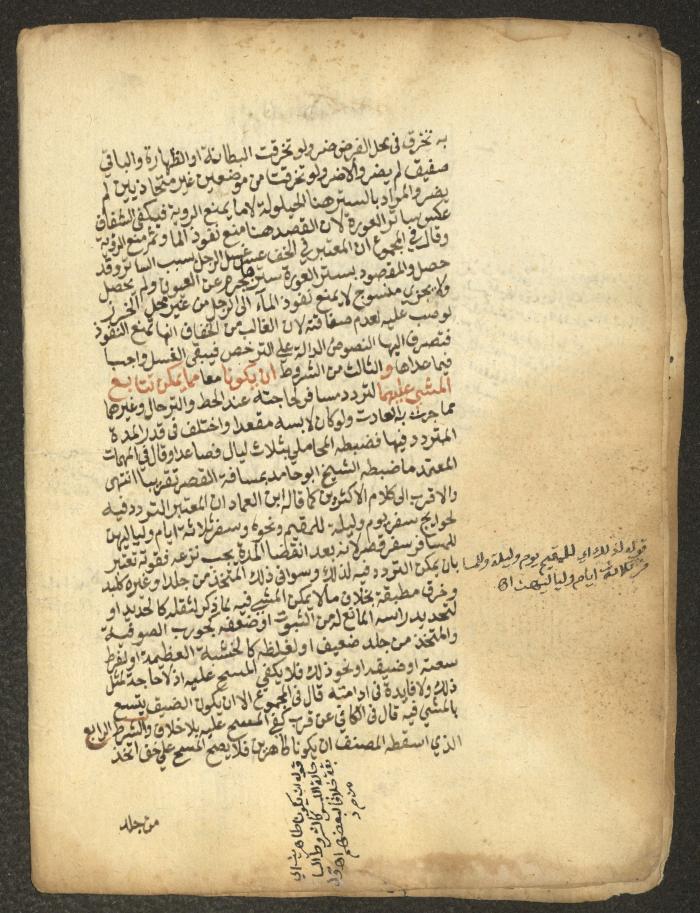 به تخرق في محل الفرض ضر ولو تخرقت البطانة او الظهارة والباقي
صفيق لم يضر والا ضر ولو تخرقتا من موضعين غير متحاذيين لم
يضر والمراد بالستر هنا الحيلولة لا ما يمنع الروية فيكفي الشفاف
عكس ساتر العورة لان القصد هنا منع نفوذ الما وثم منع الروية
وقال في المجموع ان المعتبر في الخف عسر غسل الرجل بسبب الساتر وقد
حصل والمقصود بستر العورة سترها عن العيون ولم يحصل
ولا يجزي منسوج لا يمنع نفوذ الماء الى الرجل من غير محل الخرز
لو صب عليه لعدم صفاقته لان الغالب من الخفاف انها تمنع النفوذ
فتصرف اليها النصوص الدالة على الترخص فيبقى الغسل واجبا
فيما عداها والثالث من الشروط ان يكونا معا مما يمكن تتابع
المشي عليهما لتردد مسافر لحاجته عند الحط والترحال وغيرهما
مما جرت به العادت ولو كان لابسه مقعدا واختلف في قدر المدة
المتردد فيها فضبطه المحاملي بثلاث ليال فصاعدا وقال في المهمات
المعتمد ما ضبطه الشيخ ابو حامد بمسافة القصر تقريبا انتهى
والاقرب الى كلام الاكثرين كما قاله ابن العماد ان المعتبر التردد فيه
لحوايج سفر يوم وليلة للمقيم ونحوه وسفر ثلاثة ايام ولياليهن
للمسافر سفر قصر لانه بعد انقضا المدة يجب نزعه فقوته تعتبر
بان يمكن التردد فيه لذلك وسوا في ذلك المتخذ من جلد او غيره كلبد
وخرق مطبقة بخلاف ما لا يمكن المشي فيه لما ذكر لثقله كالحديد او
لتحديد راسه المانع له من الثبوت او ضعفه كجورب الصوفية
والمتخذ من جلد ضعيف او لغلظه كالخشبة العظيمة او لفرط
سعته او ضيقه او نحو ذلك فلا يكفي المسح عليه اذ لا حاجة لمثل
ذلك ولا فايدة في ادامته قال في المجموع الا ان يكون الضيق يتسع
بالمشي فيه قال في الكافي عن قرب كفى المسح عليه بلا خلاف والشرط الرابع
الذي اسقطه المصنف ان يكونا طاهرين فلا يصح المسح على خف اتخذ
من جلد
قوله لذلك اي للمقيم يوم وليلة وللمسا
فر ثلاثة ايام ولياليهن اه
قوله ان يكونا طاهرين اي
حالة اللبس كالشروط السا
بقة خلافا لبعضهم اه